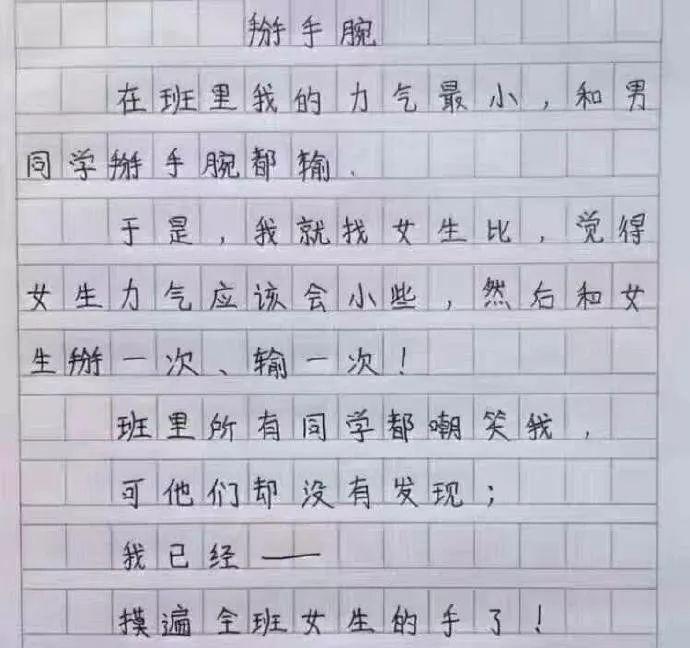 掰手腕
在班里我的力气最小，和男
同学掰手腕都输.
于是，我就找女生比，觉得
女生力气应该会小些，然后和女
生掰一次、输一次！
班里所有同学都嘲笑我，
可他们却没有发现；
我已经——
摸遍全班女生的手了！